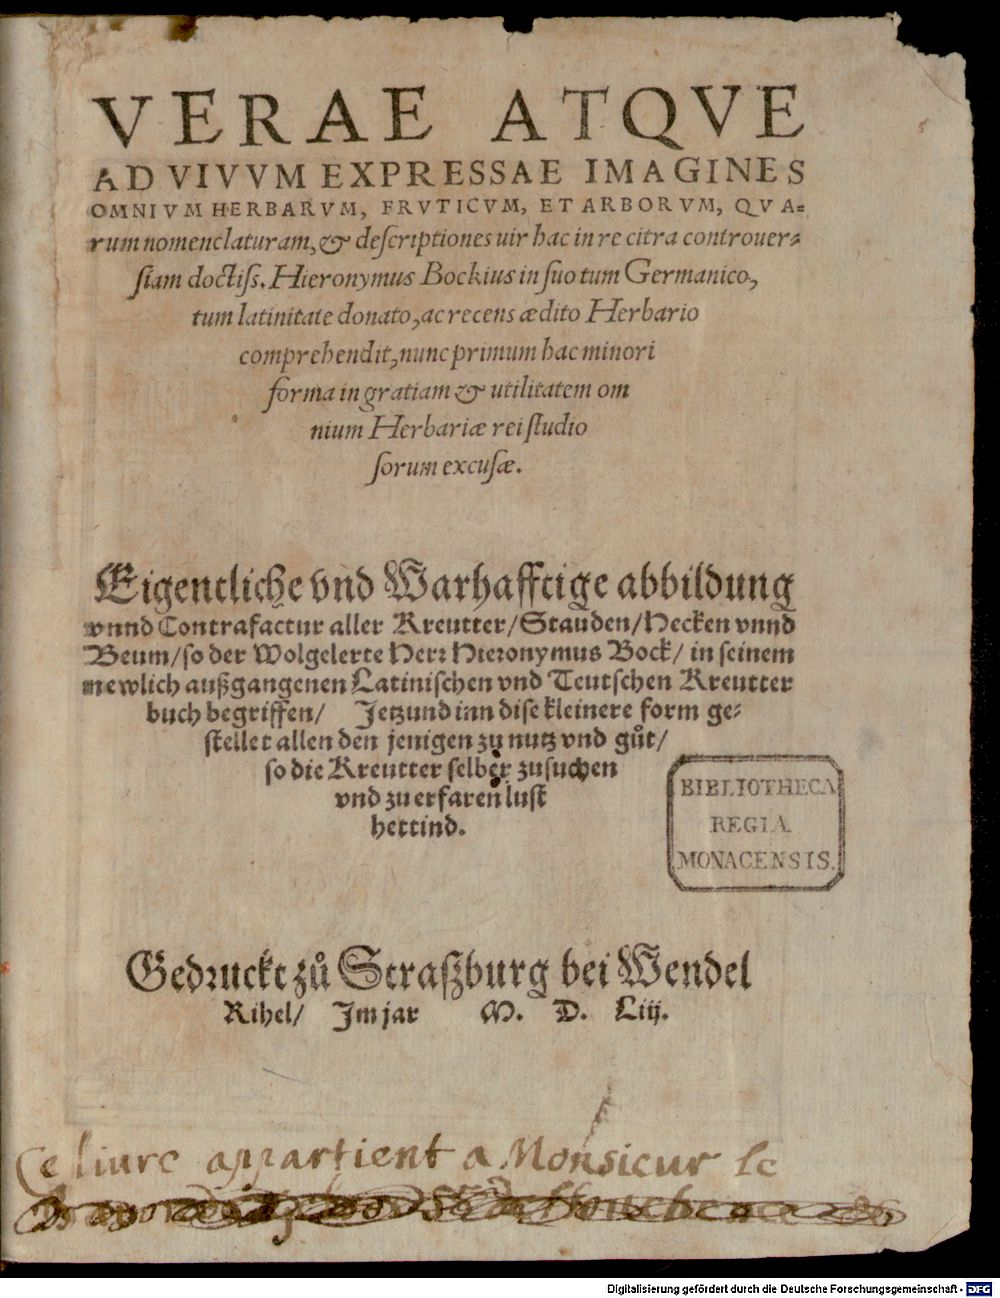 VERAE ATQVE
AD VIVVM EXPRESSAE IMAGINES
OMNIVM HERBARVM, FRVTICVM, ET ARBORVM, QVA=
rum nomenclaturam, & deſcriptiones uir hac in re citra controuer=
ſiam doctiſs. Hieronymus Bockius in ſuo tum Germanico,
tum latinitate donato, ac recens ædito Herbario
comprehendit, nunc primum hac minori
forma in gratiam & utilitatem om
nium Herbariæ rei ſtudio
ſorum excuſæ.
Eigentliche vnd Warhafftige abbildung
vnnd Contrafactur aller Kreutter/Stauden/Hecken vnnd
Beum/ so der Wolgelerte Herr Hieronymus Bock/ in seinem
newlich außgangenen Latinischen vnd Teutschen Kreutter
buch begriffen/ Jetzund inn dise kleinere form ge=
stellet allen den jenigen zu nutz vnd gůt/
so die Kreutter selber zusuchen
vnd zu erfaren lust
hettind.
BIBLIOTHECA
REGIA
MONACENSIS.
Gedruckt zů Straßburg bei Wendel
Rihel/ Im jar M. D. Liij.
Ce liure appartient a Monsieur le
Digitalisierung gefördert durch die Deutsche Forschungsgemeinschaft - DFG